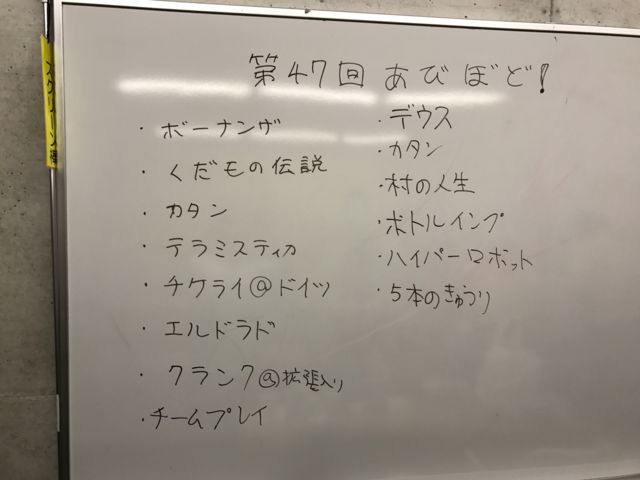 第47回 あびぼど!
・ボーナンザ
・くだもの伝説
・カタン
・テラミスティカ
・チケライ@ドイツ
・エルドラド
・クランク@拡張入り
・チームプレイ
・デウス
・カタン
・村の人生
・ボトルインプ
・ハイパーロボット
・5本のきゅうり
スクリーン